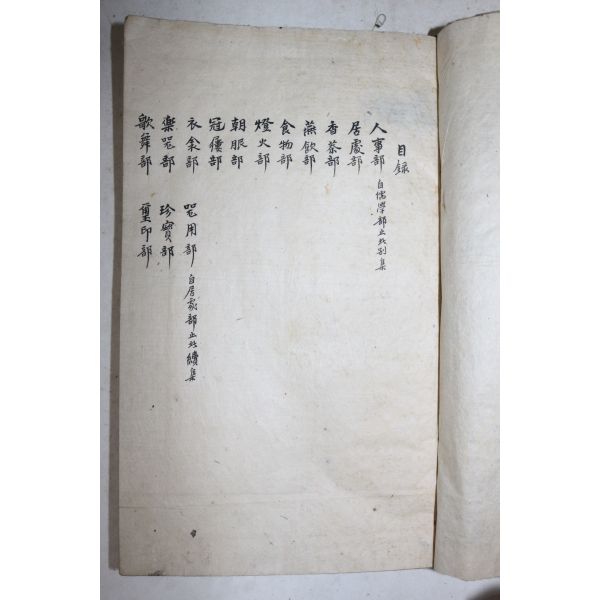 目录
人事部 自儒學部止此別集
居處部
香茶部
燕飮部
食物部
燈火部
朝服部
冠屨部
衣衾部 器用部 自居處部止此續集
樂器部 珍寶部
歌舞部 璽印部